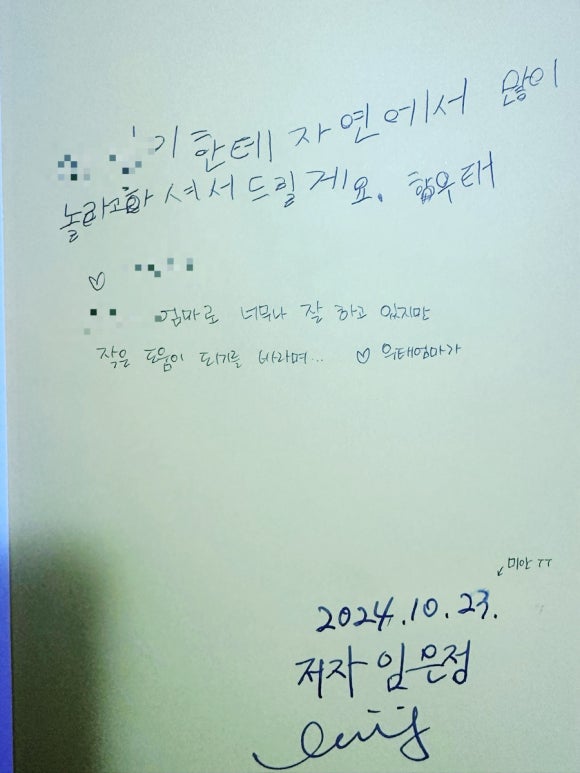 기한테 자연에서 많이
놀라고하셔서드릴게요. 우태
♡
엄마로 너무나 잘 하고 있지만
작은 도움이 되기를 바라며... ♡ 우태엄마가
미안
2024.10.23.
저자 임은정